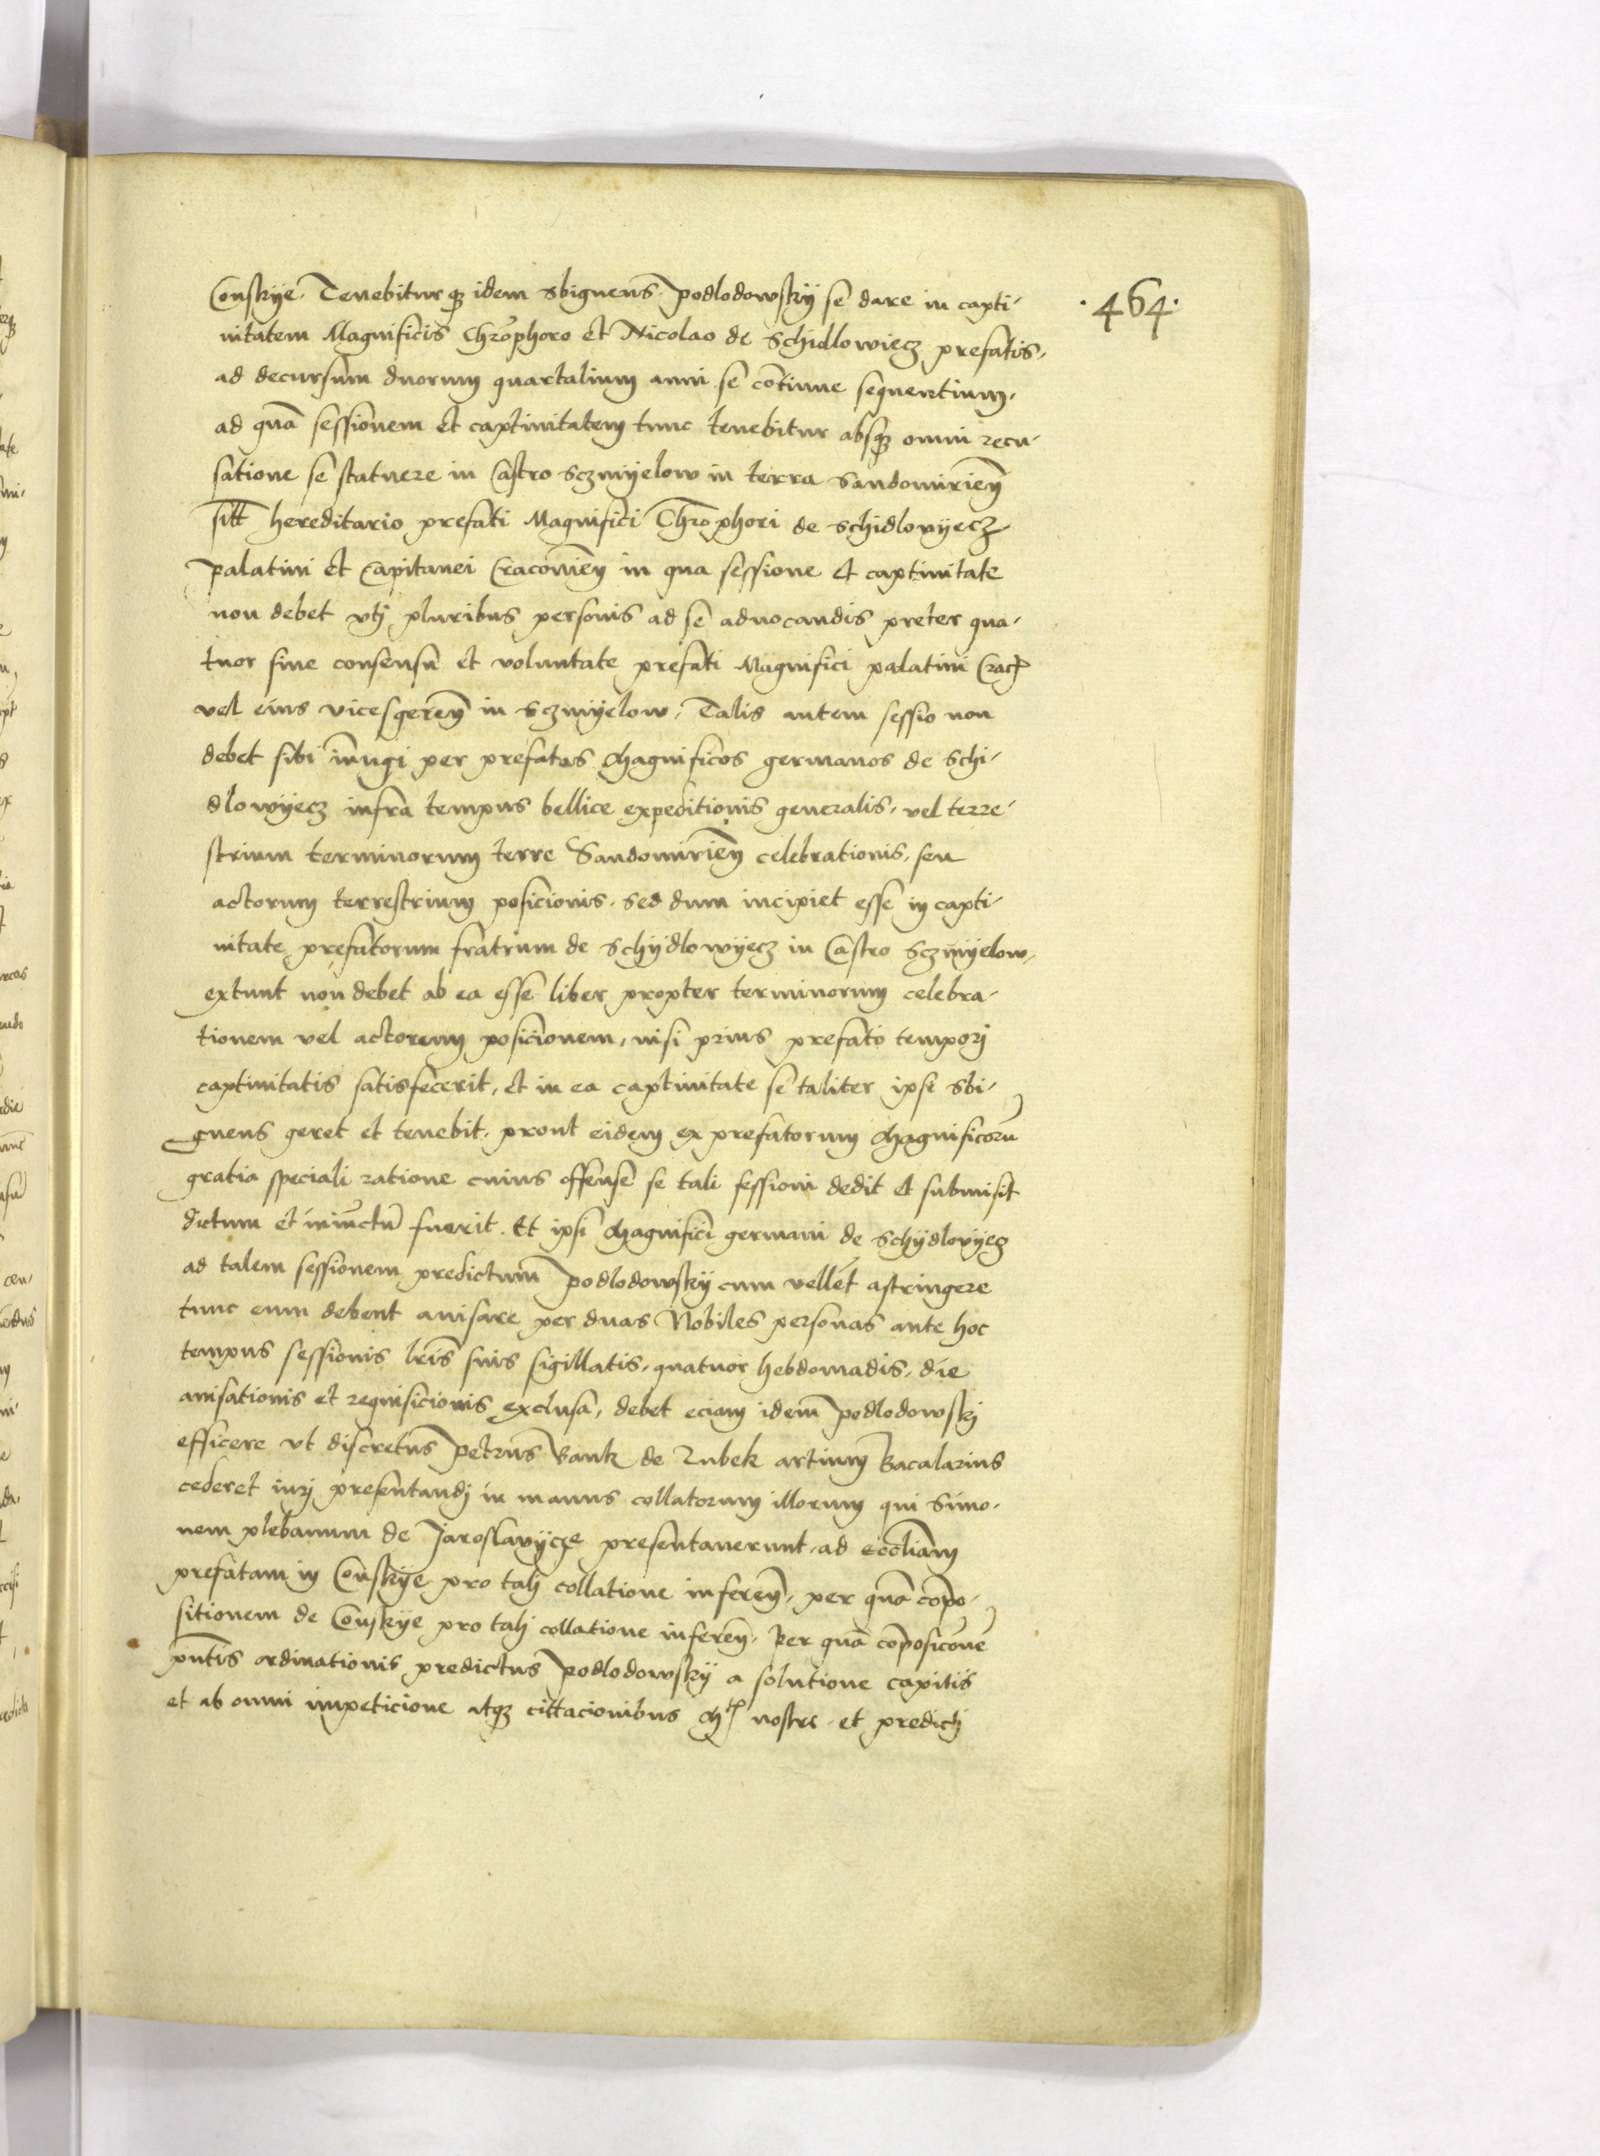 ·464·
Conskye. Tenebiturq3 idem Sbigneus podlodowsky se dare in capti-
uitatem Magnificis Chrōphoro et Nicolao de Schidlowiecz prefatis,
ad decursum duorum quartalium anni se cōtinue sequentium,
ad quā sessionem et captiuitatem tunc tenebitur absq3 omni recu-
satione se statuere in Castro Sczmyelow in terra Sandomirień
sitt hereditario prefati Magnifici Chrōphori de Schidlovyecz
palatini et Capitanei Cracouień in qua sessione et captiuitate
non debet vtj pluribus personis ad se aduocandis preter qua-
tuor sine consensu et voluntate prefati Magnifici palatini Crac
vel eius vicesgereń in Sczmyelow, Talis autem sessio non
debet sibi iniūgi per prefatos Magnificos germanos de Schi-
dlowyecz infra tempus bellice expeditionis generalis, vel terre-
strium terminorum terre Sandomirień celebrationis, seu
actorum terrestrium posicionis. Sed dum incipiet esse in capti-
uitate prefatorum fratrum de Schydlowyecz in Castro Sczmyelow,
extunt non debet ab ea esse liber propter terminorum celebra-
tionem vel actorum posicionem, nisi prius prefato temporj
captiuitatis satisfecerit, et in ea captiuitate se taliter ipse Sbi-
gneus geret et tenebit. prout eidem ex prefatorum Magnificorū
gratia speciali ratione cuius offense se tali sessioni dedit et submisit
dictum et iniūctū fuerit. Et ipsi Magnifici germani de Schydlovyecz
ad talem sessionem predictum podlodowsky cum vellet astringere
tunc eum debent auisare per duas Nobiles personas ante hoc
tempus sessionis lr̄is suis sigillatis, quatuor hebdomadis, die
auisationis et requisicionis exclusa, debet eciam idem podlodowskj
efficere vt discretus petrus Bank de Rubek artium Bacalarius
cederet iurj presentandj in manus collatorum illorum qui Simo-
nem plebanum de Jaroslavycze presentauerunt, ad eccliām
prefatam in Conskye pro talj collatione infereń, per quā cōpo-
sitionem de Conskye pro talj collatione infereń. per quā cōposicionē
pn̄tis ordinationis predictus podlodowsky a solutione capitis
et ab omni impeticione atq3 cittacionibus Mtis nostre et predictj